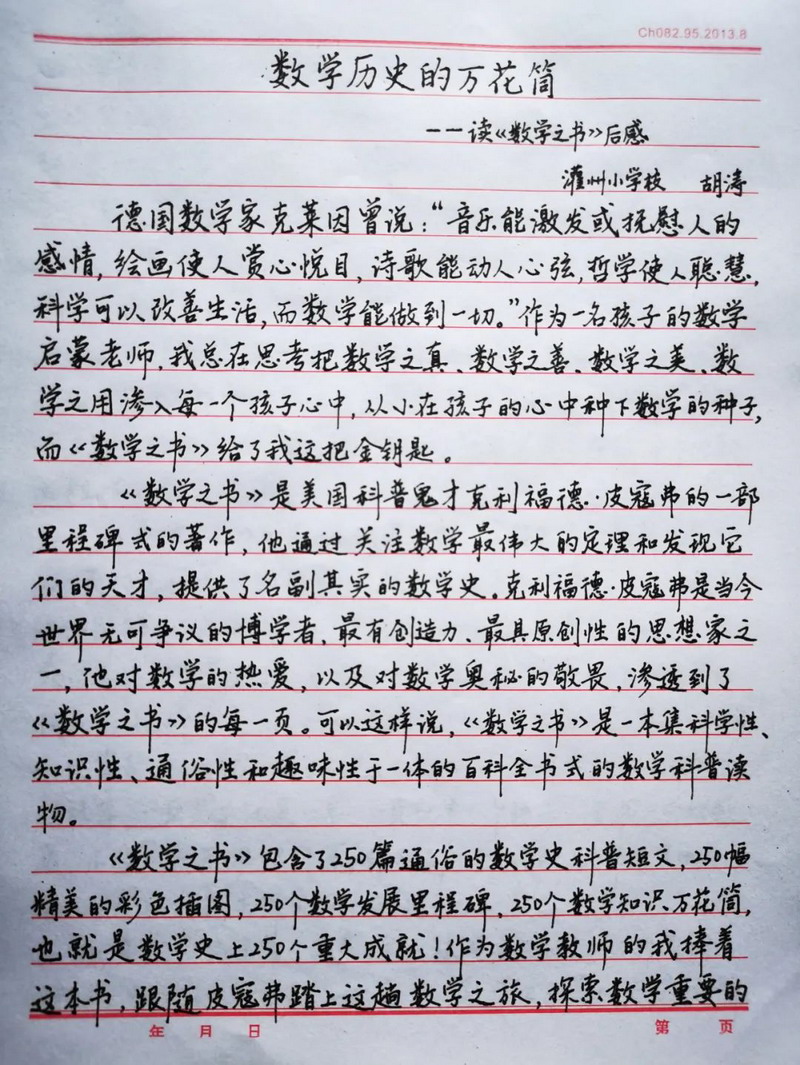 Ch082.95.2013.8
数学历史的万花筒
——读《数学之书》后感
灌州小学校 胡涛
德国数学家克莱因曾说：“音乐能激发或抚慰人的
感情，绘画使人赏心悦目，诗歌能动人心弦，哲学使人聪慧，
科学可以改善生活，而数学能做到一切。”作为一名孩子的数学
启蒙老师，我总在思考把数学之真、数学之善、数学之美、数
学之用渗入每一个孩子心中，从小在孩子的心中种下数学的种子，
而《数学之书》给了我这把金钥匙。
《数学之书》是美国科普鬼才克利福德·皮寇弗的一部
里程碑式的著作，他通过关注数学最伟大的定理和发现它
们的天才，提供了名副其实的数学史。克利福德·皮寇弗是当今
世界无可争议的博学者、最有创造力、最具原创性的思想家之
一，他对数学的热爱，以及对数学奥秘的敬畏，渗透到了
《数学之书》的每一页。可以这样说，《数学之书》是一本集科学性、
知识性、通俗性和趣味性于一体的百科全书式的数学科普读
物。
《数学之书》包含了250篇通俗的数学史科普短文，250幅
精美的彩色插图，250个数学发展里程碑，250个数学知识万花筒，
也就是数学史上250个重大成就！作为数学教师的我捧着
这本书，跟随皮寇弗踏上这趟数学之旅，探索数学重要的
年 月 日 第 页